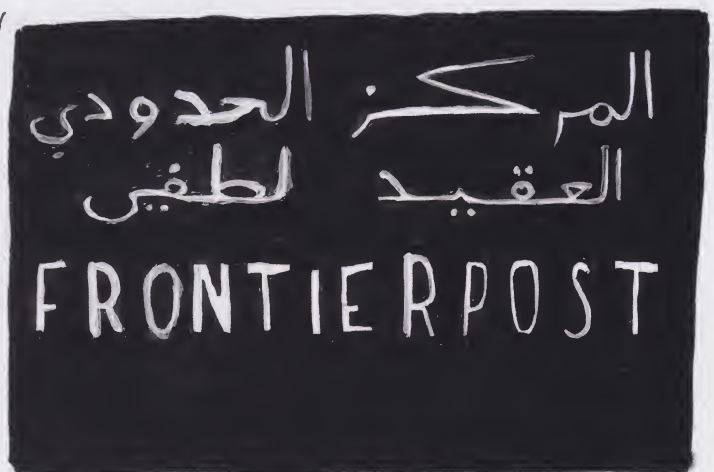 المركز الحدودي
العقيد لطفي
FRONTIERPOST